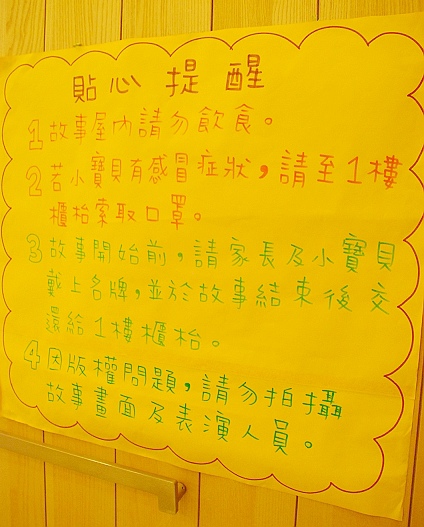 貼心提醒
1 故事屋內請勿飲食。
2 若小寶貝有感冒症狀,請至1樓
櫃枱索取口罩。
3 故事開始前,請家長及小寶貝
戴上名牌,並於故事結束後交
還給1樓櫃枱。
4 因版權問題,請勿拍攝
故事畫面及表演人員。